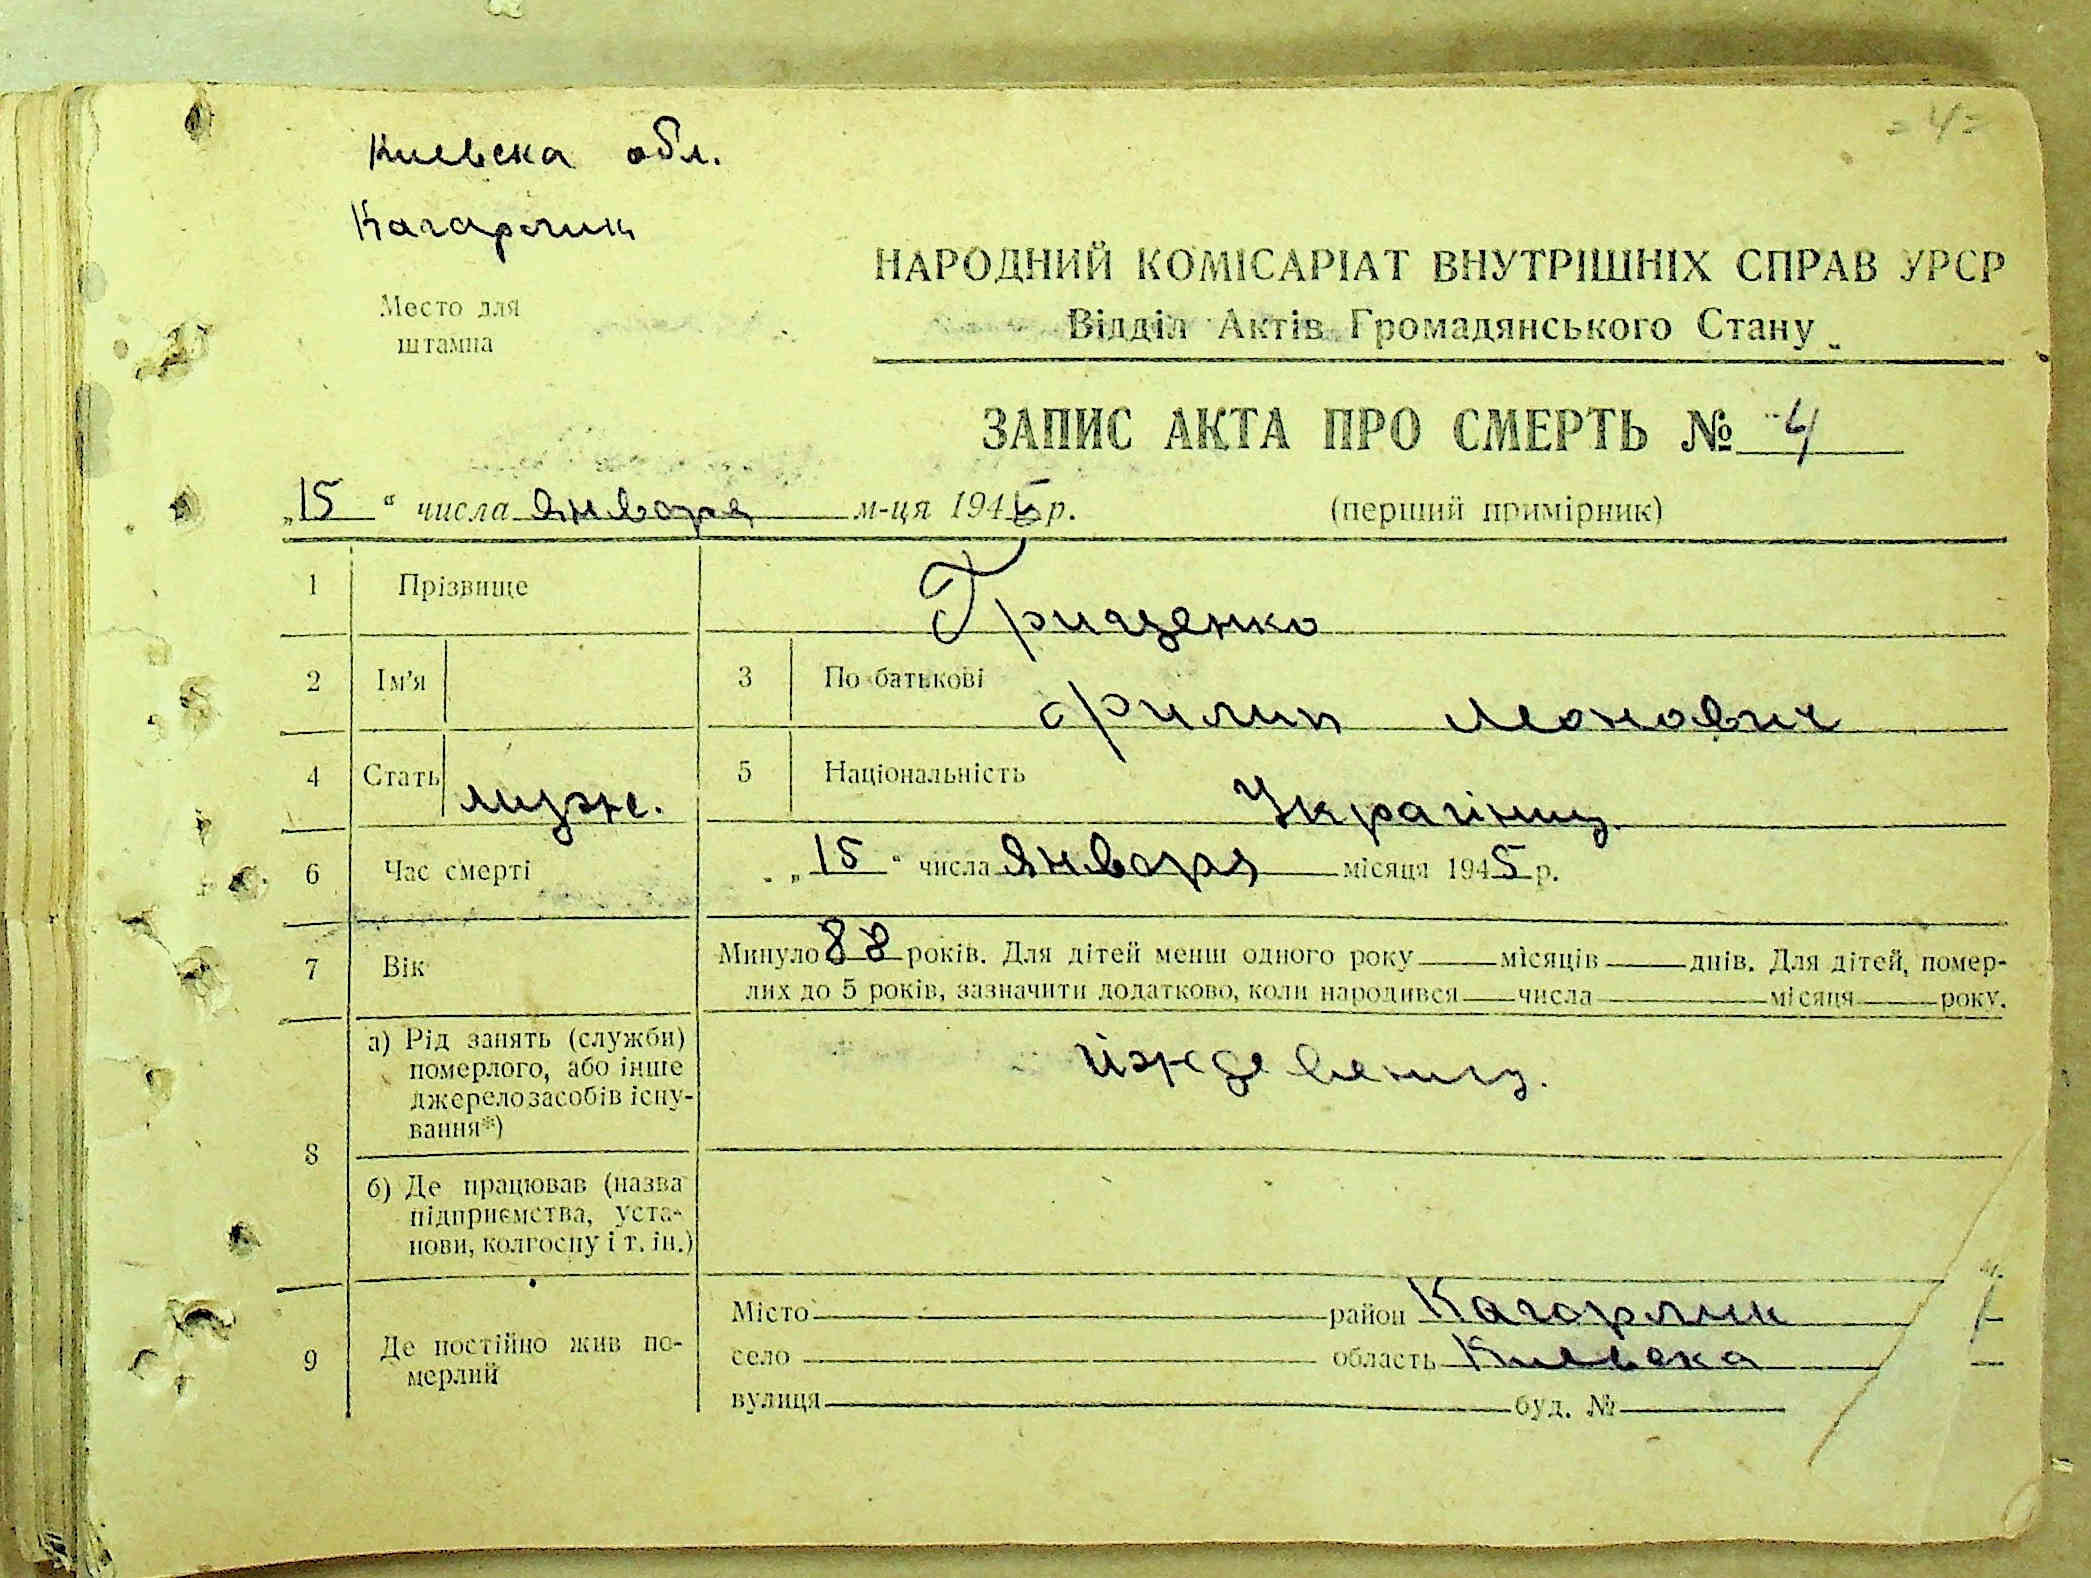 = 4 =
Киевска обл.
Кагарлик
Место для
штампа
НАРОДНИЙ КОМІСАРІАТ ВНУТРІШНІХ СПРАВ УРСР
Відділ Актів Громадянського Стану
ЗАПИС АКТА ПРО СМЕРТЬ № 4
„15“ числа января м-ця 1945 р. (перший примірник)
1 Прізвище Грищенко
2 Ім'я 3 По батькові Филип Леонович
4 Стать муж. 5 Національність Українец
6 Час смерті „15“ числа января місяця 1945 р.
7 Вік Минуло 88 років. Для дітей менш одного року місяців днів. Для дітей, помер-
лих до 5 років, зазначити додатково, коли народився числа місяця року.
8 а) Рід занять (служби) померлого, або інше джерело засобів існу-вання*) йждевениц.
б) Де працював (назва підприємства, уста-нови, колгоспу і т. ін.)
9 Де постійно жив по-мерлий
Місто район Кагорлик
село область Киевска
вулиця буд. №